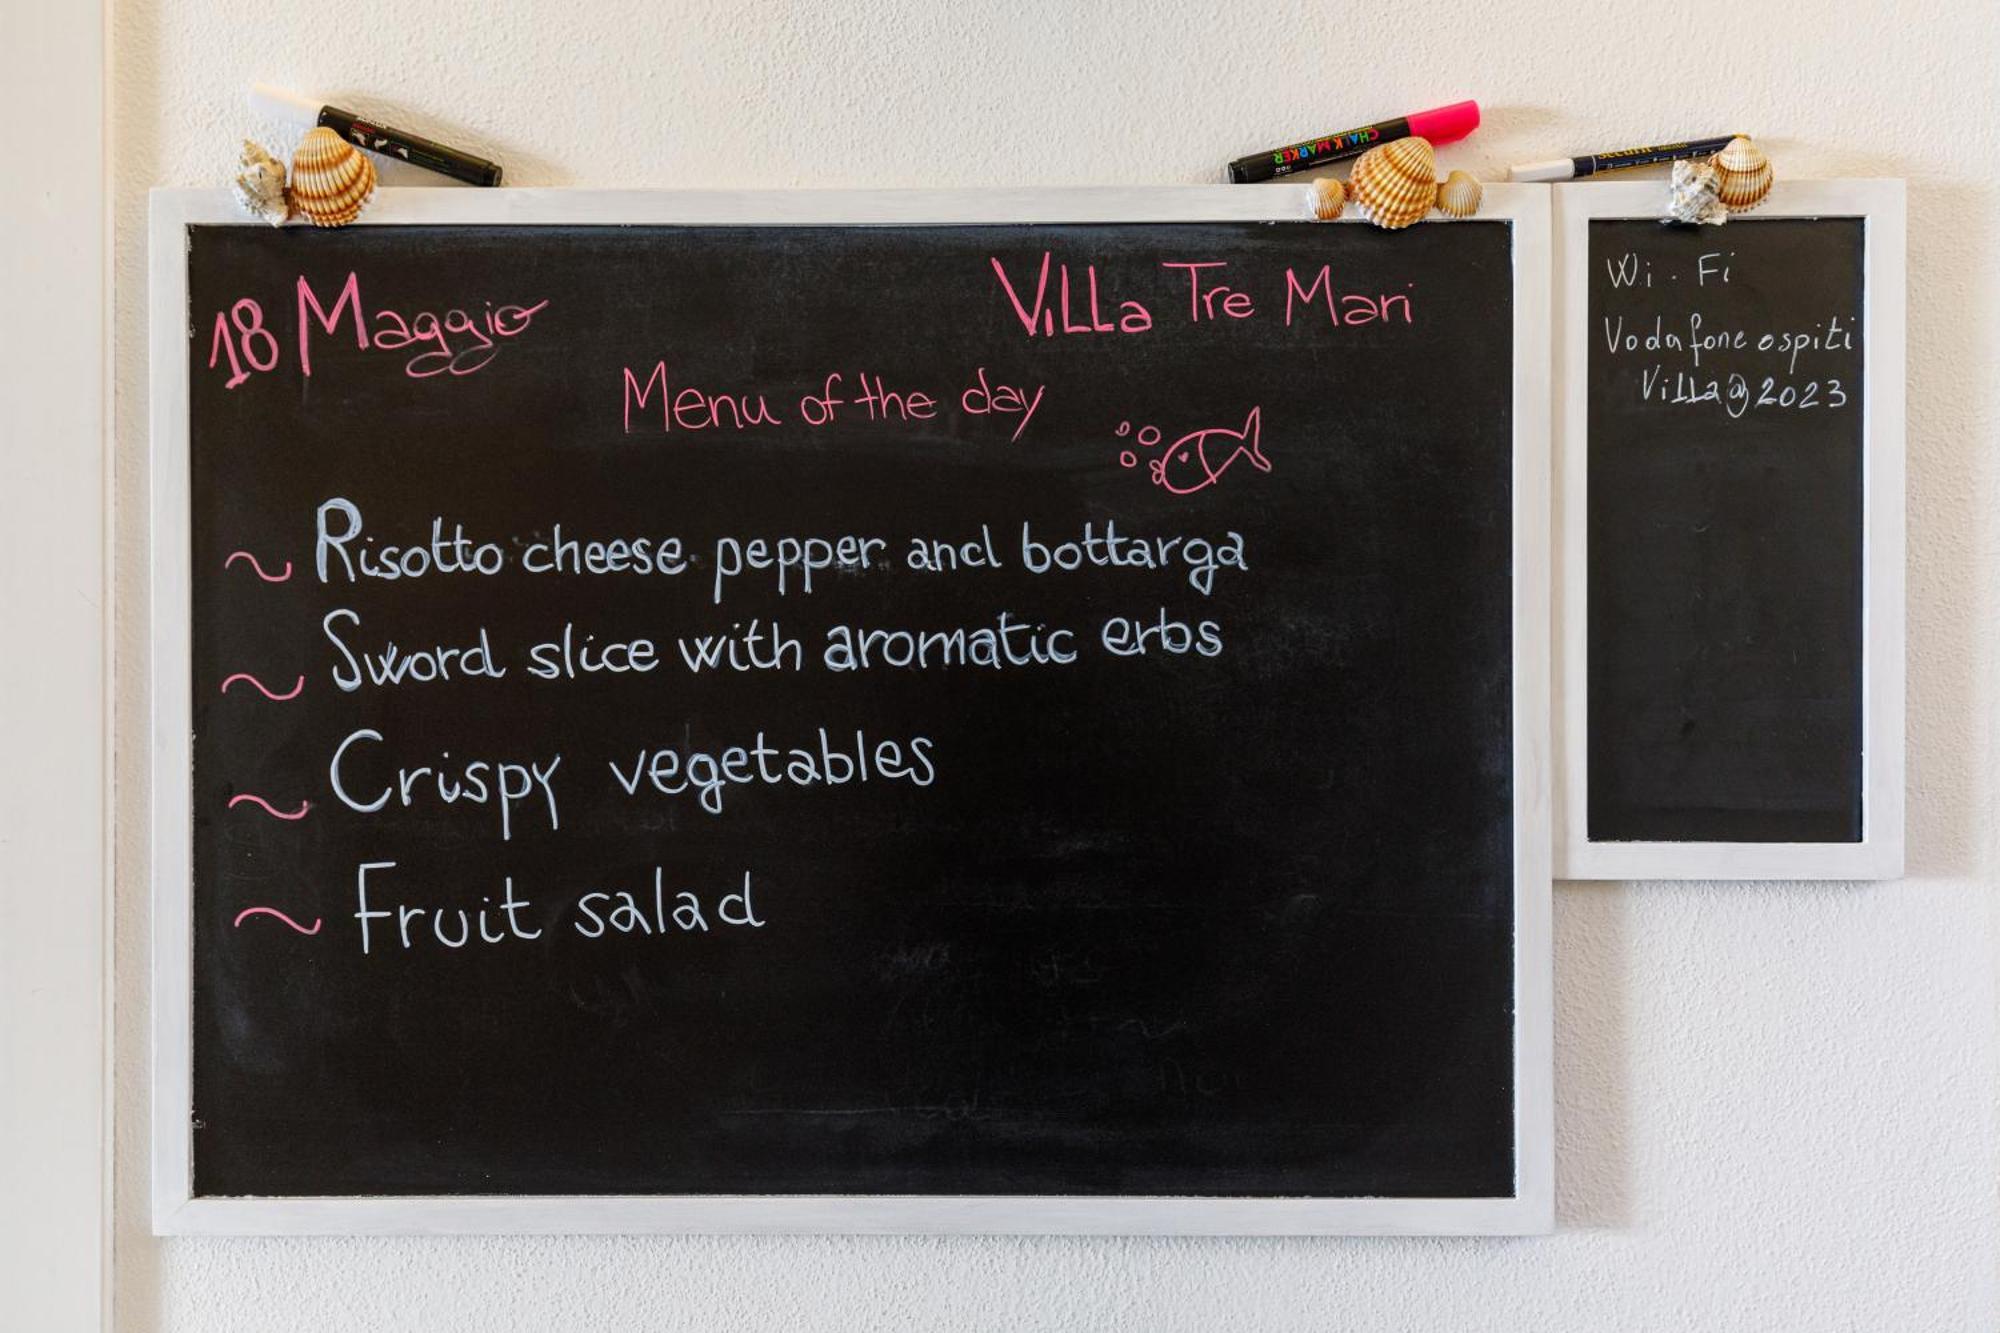 18 Maggio
Villa Tre Mari
Menu of the day
~ Risotto cheese pepper and bottarga
~ Sword slice with aromatic erbs
~ Crispy vegetables
~ Fruit salad
Wi.Fi
Vodafone ospiti
Villa@2023
CHALK MARKER
securit